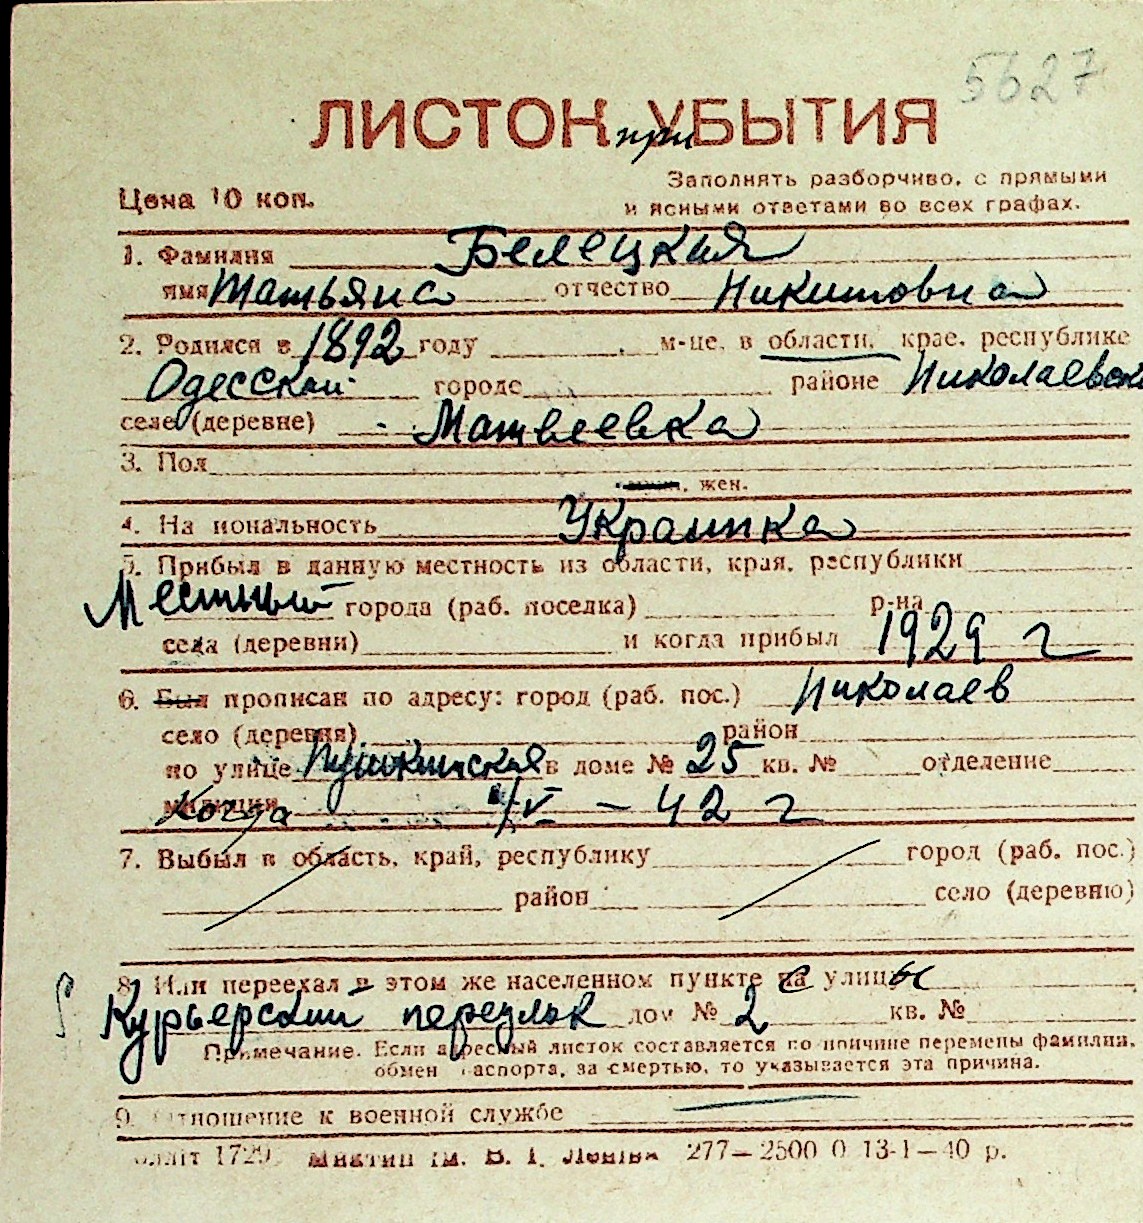 5627
ЛИСТОК при УБЫТИЯ
Заполнять разборчиво, с прямыми
Цена 10 коп.
и ясными ответами во всех графах.
1. Фамилия Белецкая
имя Татьяна отчество Никитовна
2. Родился в 1892 году м-це, в области, крае, республике
Одесской городе районе Николаевск
селе (деревне) Матвеевка
3. Пол
жен.
4. На иональность Украинка
5. Прибыл в данную местность из области, края, республики
Местный города (раб. поселка) р-на
села (деревни) и когда прибыл 1929 г
6. Был прописан по адресу: город (раб. пос.) Николаев
село (деревня) район
по улице Пушкинская в доме № 25 кв. № отделение
милиции Когда 4/V - 42 г
7. Выбыл в область, край, республику город (раб. пос.)
район село (деревню)
8. Или переехал в этом же населенном пункте с улицы
Курьерский переулок дом № 2 кв. №
Примечание. Если адресный листок составляется по причине перемены фамилии,
обмен паспорта, за смертью, то указывается эта причина.
9. Отношение к военной службе
1729 ім. В. І. Леніна 277—2500 0 13-1—40 р.